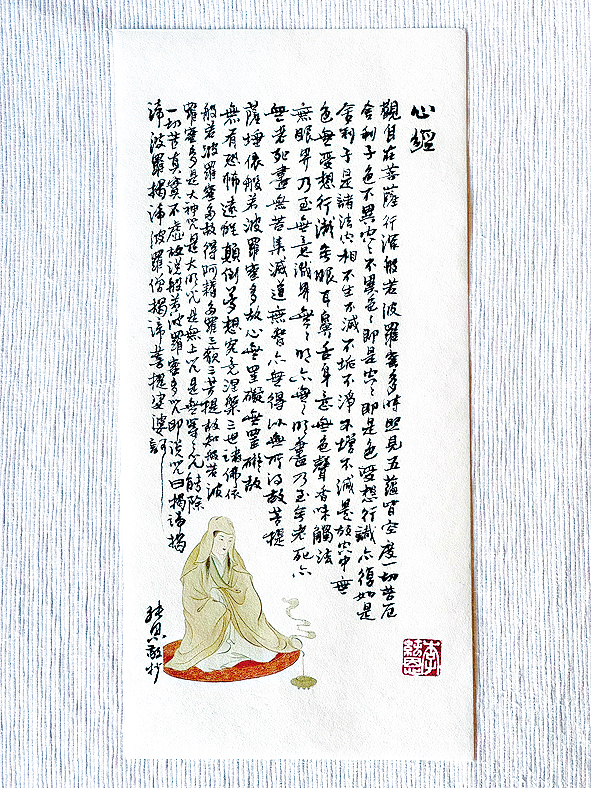 心經
觀自在菩薩行深般若波羅蜜多時照見五蘊皆空度一切苦厄
舍利子色不異空〻不異色〻即是空〻即是色受想行識亦復如是
舍利子是諸法空相不生不滅不垢不淨不增不減是故空中無
色無受想行識無眼耳鼻舌身意無色聲香味觸法
無眼界乃至無意識界無〻明亦無〻明盡乃至無老死亦
無老死盡無苦集滅道無智亦無得以無所得故菩提
薩埵依般若波羅蜜多故心無罣礙無罣礙故
無有恐怖遠離顛倒夢想究竟涅槃三世諸佛依
般若波羅蜜多故得阿耨多羅三藐三菩提故知般若波
羅蜜多是大神咒是大明咒是無上咒是無等〻咒能除
一切苦真實不虛故說般若波羅蜜多咒即說咒曰揭諦揭
諦波羅揭諦波羅僧揭諦菩提娑婆訶
恩敬抄
李